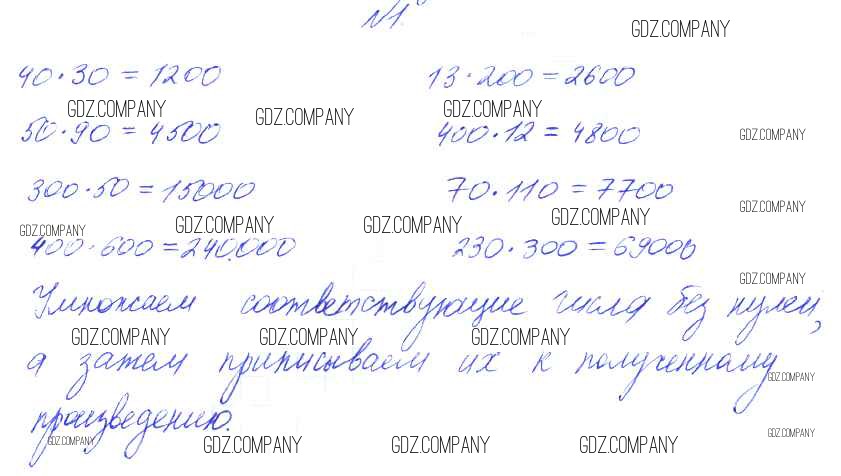 №1.
GDZ.COMPANY
40·30 = 1200 13·200 = 2600
GDZ.COMPANY GDZ.COMPANY GDZ.COMPANY
50·90 = 4500 400·12 = 4800 GDZ.COMPANY
300·50 = 15000 70·110 = 7700
GDZ.COMPANY
GDZ.COMPANY GDZ.COMPANY GDZ.COMPANY GDZ.COMPANY
400·600 = 240.000 230·300 = 69000
GDZ.COMPANY
Умножаем соответствующие числа без нулей,
GDZ.COMPANY GDZ.COMPANY GDZ.COMPANY
а затем приписываем их к полученному
GDZ.COMPANY
произведению.
GDZ.COMPANY GDZ.COMPANY GDZ.COMPANY GDZ.COMPANY GDZ.COMPANY